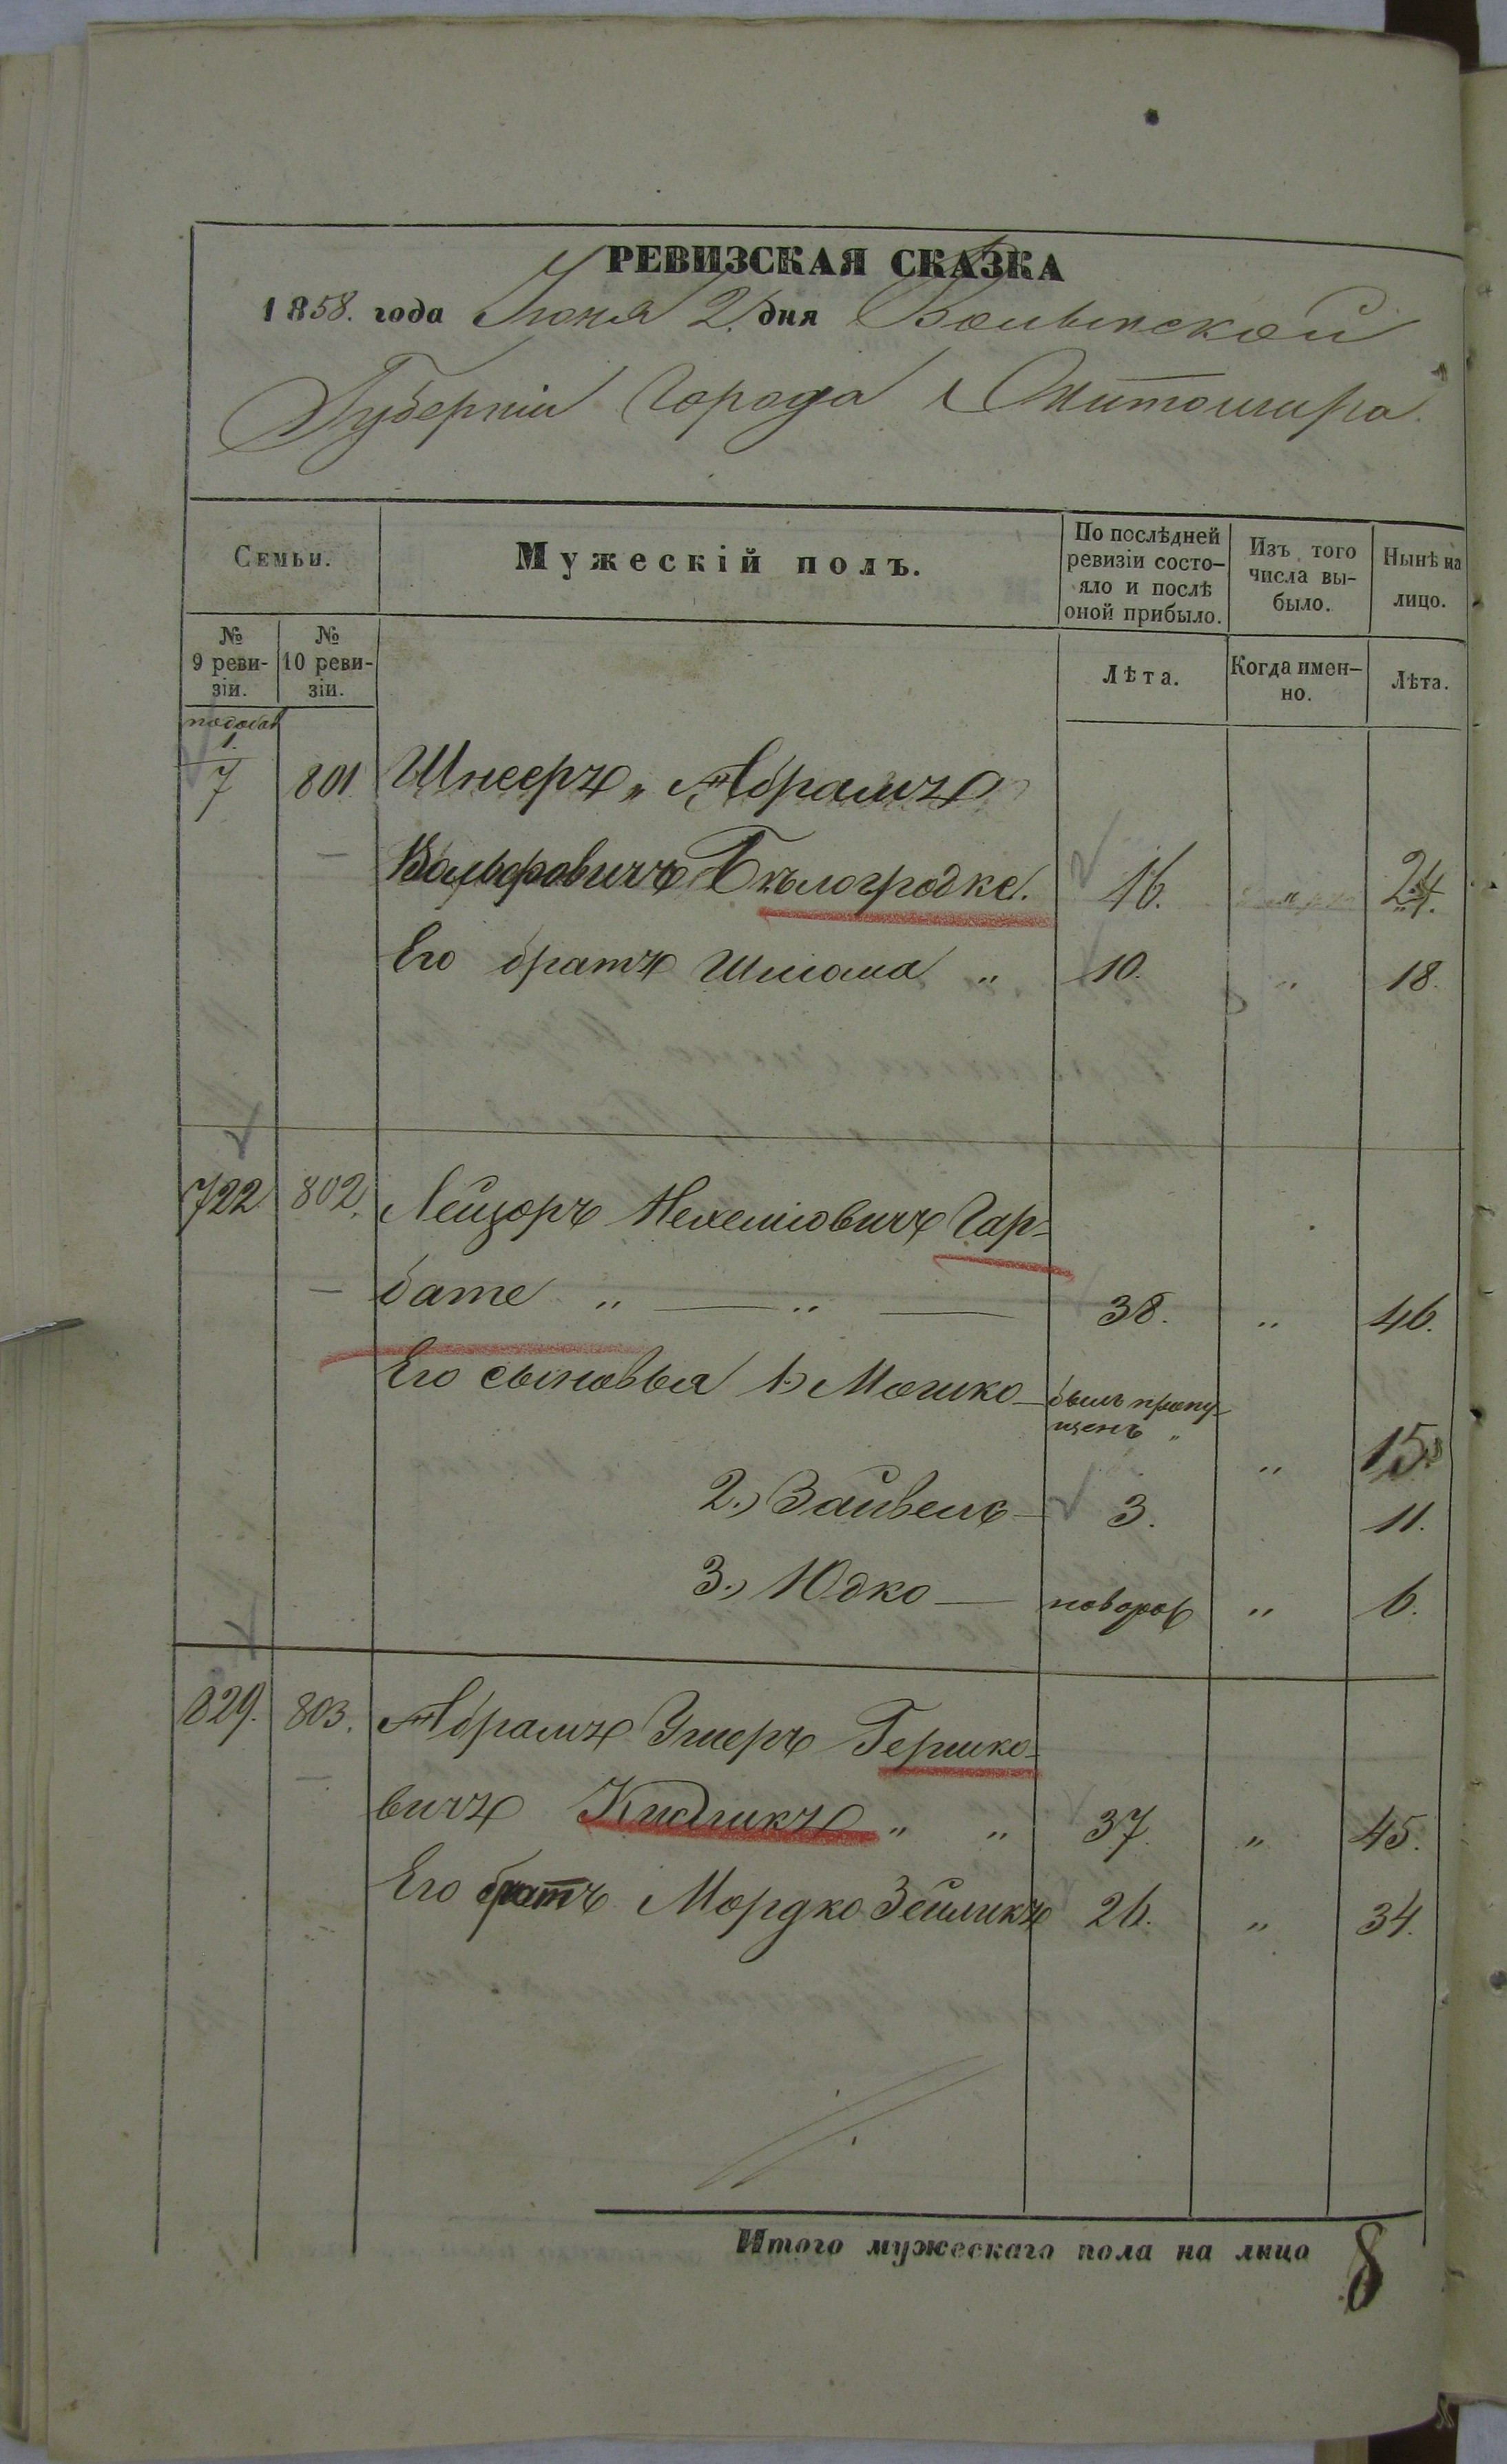 РЕВИЗСКАЯ СКАЗКА
1858. года Іюня 2. дня Волынской
Губерніи Города Житомира.
Семьи.
Мужескій полъ.
По послѣдней ревизіи состояло и послѣ оной прибыло.
Изъ того числа выбыло.
Нынѣ на лицо.
№ 9 ревизіи.
№ 10 ревизіи.
Лѣта.
Когда именно.
Лѣта.
1.
7 801 Шнееръ „ Абрамъ
Вольфовичъ Бѣлогродке. 16. „ 24.
Его братъ Шлома „ 10. „ 18.
722 802. Лейзоръ Нехеміовичъ Гар-
бате „ — „ — 38. „ 46.
Его сыновья 1.) Мошко — былъ пропу-
щенъ „ „ 15.
2.) Зайвель — 3. 11.
3.) Юдко — новорож „ 6.
829. 803. Абрамъ Ушеръ Гершко-
вичъ Кижликъ „ „ 37. „ 45.
Его братъ Мордко Зейликъ 26. „ 34.
Итого мужескаго пола на лицо 8